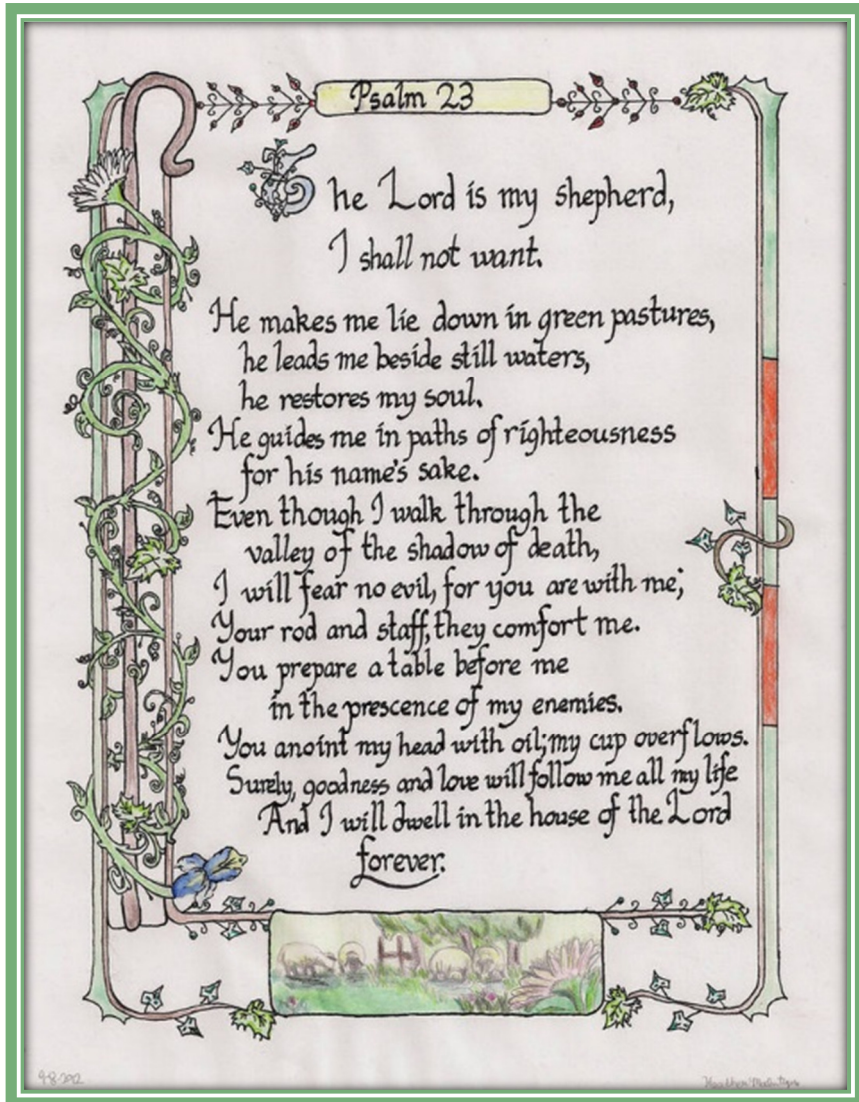 Psalm 23
The Lord is my shepherd,
I shall not want.
He makes me lie down in green pastures,
he leads me beside still waters,
he restores my soul.
He guides me in paths of righteousness
for his name's sake.
Even though I walk through the
valley of the shadow of death,
I will fear no evil, for you are with me;
Your rod and staff, they comfort me.
You prepare a table before me
in the prescence of my enemies.
You anoint my head with oil; my cup overflows.
Surely, goodness and love will follow me all my life
And I will dwell in the house of the Lord
forever.
9-8-2012
Heather